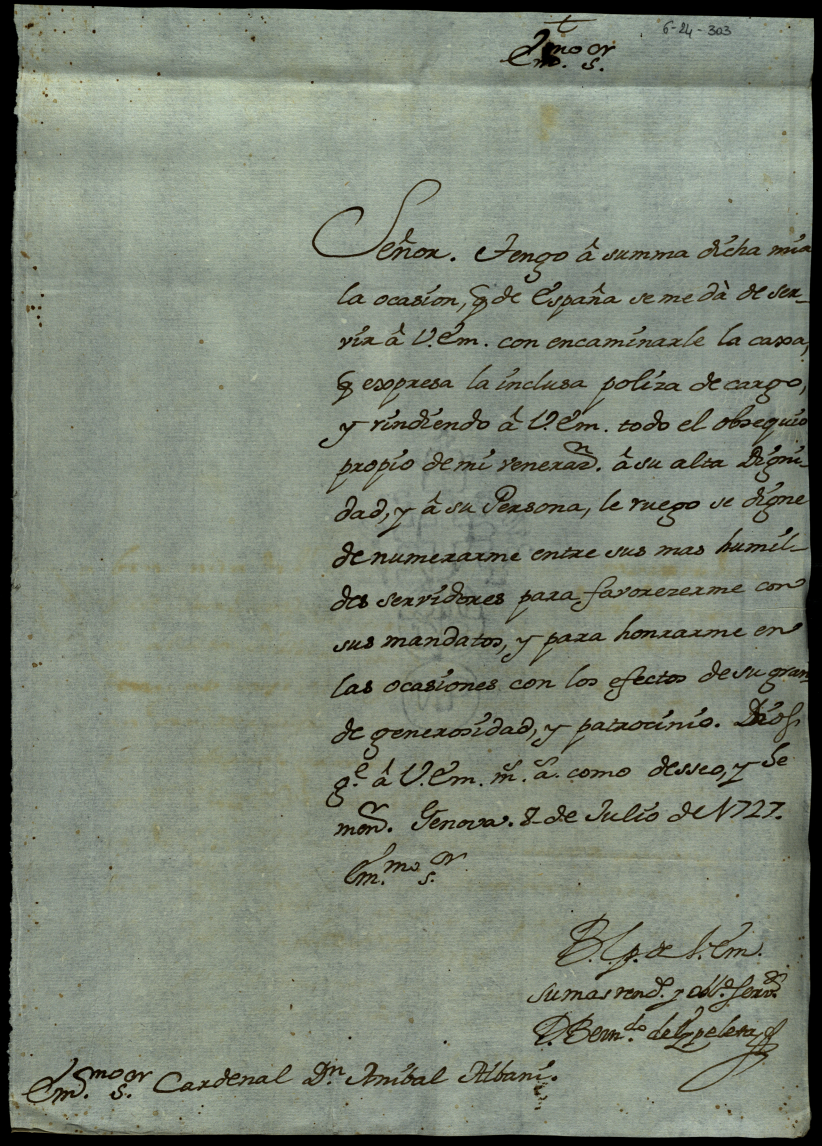 6-24-303
†
Em.mo S.or
Señor. Tengo â summa dicha mia
la ocasion, q de España se me dà de ser-
vir â V. Em. con encaminarle la caxa,
q expresa la inclusa poliza de cargo,
y rindiendo â V. Em. todo el obsequio
propio de mi veneraz.n â su alta Digni-
dad, y â su Persona, le ruego se digne
de numerarme entre sus mas humil-
des servidores para favorezerme con
sus mandatos, y para honrarme en
las ocasiones con los efectos de su gran-
de generosidad, y patrocinio. Dios
g.e â V. Em. m.s a.s como desseo, y he
men.r Genova. 8 de Julio de 1727.
Em.mo S.or
B. L. p. de V. Em.
su mas rend.o y obl.o serv.or
D. Bern.do de Ezpeleta
Em.mo S.or Cardenal D.n Anibal Albani.